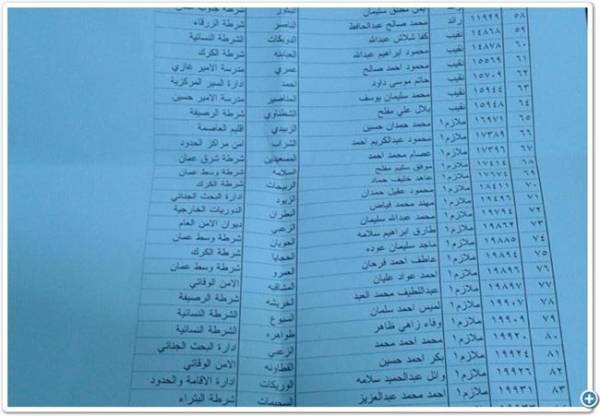 سليمان شرطة جنوب عمان
٥٨ ١١٩٩٩ رائد محمد صالح عبدالحافظ الناصير شرطة الزرقاء
٥٩ ١٤٨٦٨ نقيب كفا شلاش عبدالله الدويكات الشرطة النسائية
٦٠ ١٤٨٧٨ نقيب محمود ابراهيم عبدالله العبابنه شرطة الكرك
٦١ ١٥٥٦٩ نقيب محمود احمد صالح عمري مدرسة الامير غازي
٦٢ ١٥٧٠٩ نقيب حاتم موسى داود احمد ادارة السير المركزية
٦٣ ١٥٩٤٤ نقيب محمد سليمان يوسف المناصير مدرسة الامير حسين
٦٤ ١٥٩٤٨ نقيب بلال علي مفلح الشطناوي شرطة الرصيفة
٦٥ ١٦٩٧١ ملازم١ محمد حمدان حسين الزبيدي اقليم العاصمة
٦٦ ١٧٣٨٩ ملازم١ محمود عبدالكريم احمد الشراب امن مراكز الحدود
٦٧ ١٧٣٩٦ ملازم١ عصام محمد احمد المسعيدين شرطة شرق عمان
٦٨ ١٧٤١٤ ملازم١ موفق سليم مفلح السلامه شرطة وسط عمان
٦٩ ١٧٦٧٤ ملازم١ عاهد خليف حماد الربيحات شرطة الكرك
٧٠ ١٨٤١١ ملازم١ محمود عقيل حمدان الزيود ادارة البحث الجنائي
٧١ ١٩٤٩٦ ملازم١ مهند محمد فياض البطران الدوريات الخارجية
٧٢ ١٩٧٩٤ ملازم١ محمد عبدالله سليمان الزعبي ديوان الامن العام
٧٣ ١٩٨٦٢ ملازم١ طارق ابراهيم سلامه الحويان شرطة وسط عمان
٧٤ ١٩٨٨٥ ملازم١ ماجد سليمان عوده الحجايا شرطة الكرك
٧٥ ١٩٨٩٤ ملازم١ عاطف احمد فرحان العمرو شرطة وسط عمان
٧٦ ١٩٨٩٦ ملازم١ احمد عواد عليان المشاقبه الامن الوقائي
٧٧ ١٩٨٩٧ ملازم١ عبداللطيف محمد العيد الخريشه شرطة الرصيفة
٧٨ ١٩٩٠٧ ملازم١ لميس احمد سلمان السبوع الشرطة النسائية
٧٩ ١٩٩٠٩ ملازم١ وفاء زاهي ظاهر ظواهره الشرطة النسائية
٨٠ ١٩٩٢٠ ملازم١ محمد احمد محمد الزعبي ادارة البحث الجنائي
٨١ ١٩٩٢٤ ملازم١ بكر احمد حسين القطاونه الامن الوقائي
٨٢ ١٩٩٢٦ ملازم١ وائل عبدالحميد سلامه الوريكات ادارة الاقامة والحدود
٨٣ ١٩٩٣١ ملازم١ احمد محمد عبدالعزيز السحيمات شرطة البتراء